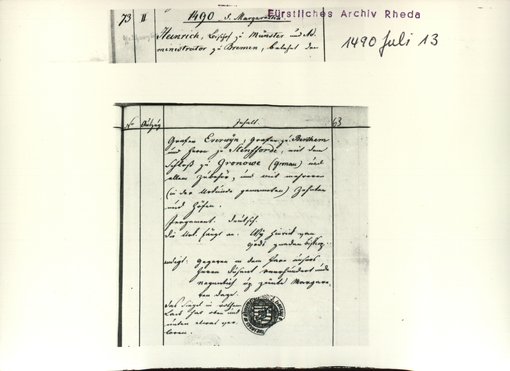 Fürstliches Archiv Rheda
73 II 1490 S. Margarethe
Heinrich, Bischof zu Münster und Ad-
ministrator zu Bremen, belehnt den
1490 Juli 13
No Auszug Inhalt. 63
Grafen Everwyn, Grafen zu Bentheim
und Herrn zu Steinfforde, mit dem
Schloß zu Gronowe (Gronau) und
allem Zubehör, und mit mehreren
(in der Urkunde genannten) Zehnten
und Höfen.
Pergament. deutsch.
die Urk. fängt an: Wij Hinrick van
Gods gnaden bisschop
endigt: gegeven in dem Jare unses
Heren dusent veerhundert unde
negentich up sünte Margare-
ten dage.
Das Siegel in rothem
Lack hat oben und
unten etwas ver-
loren.